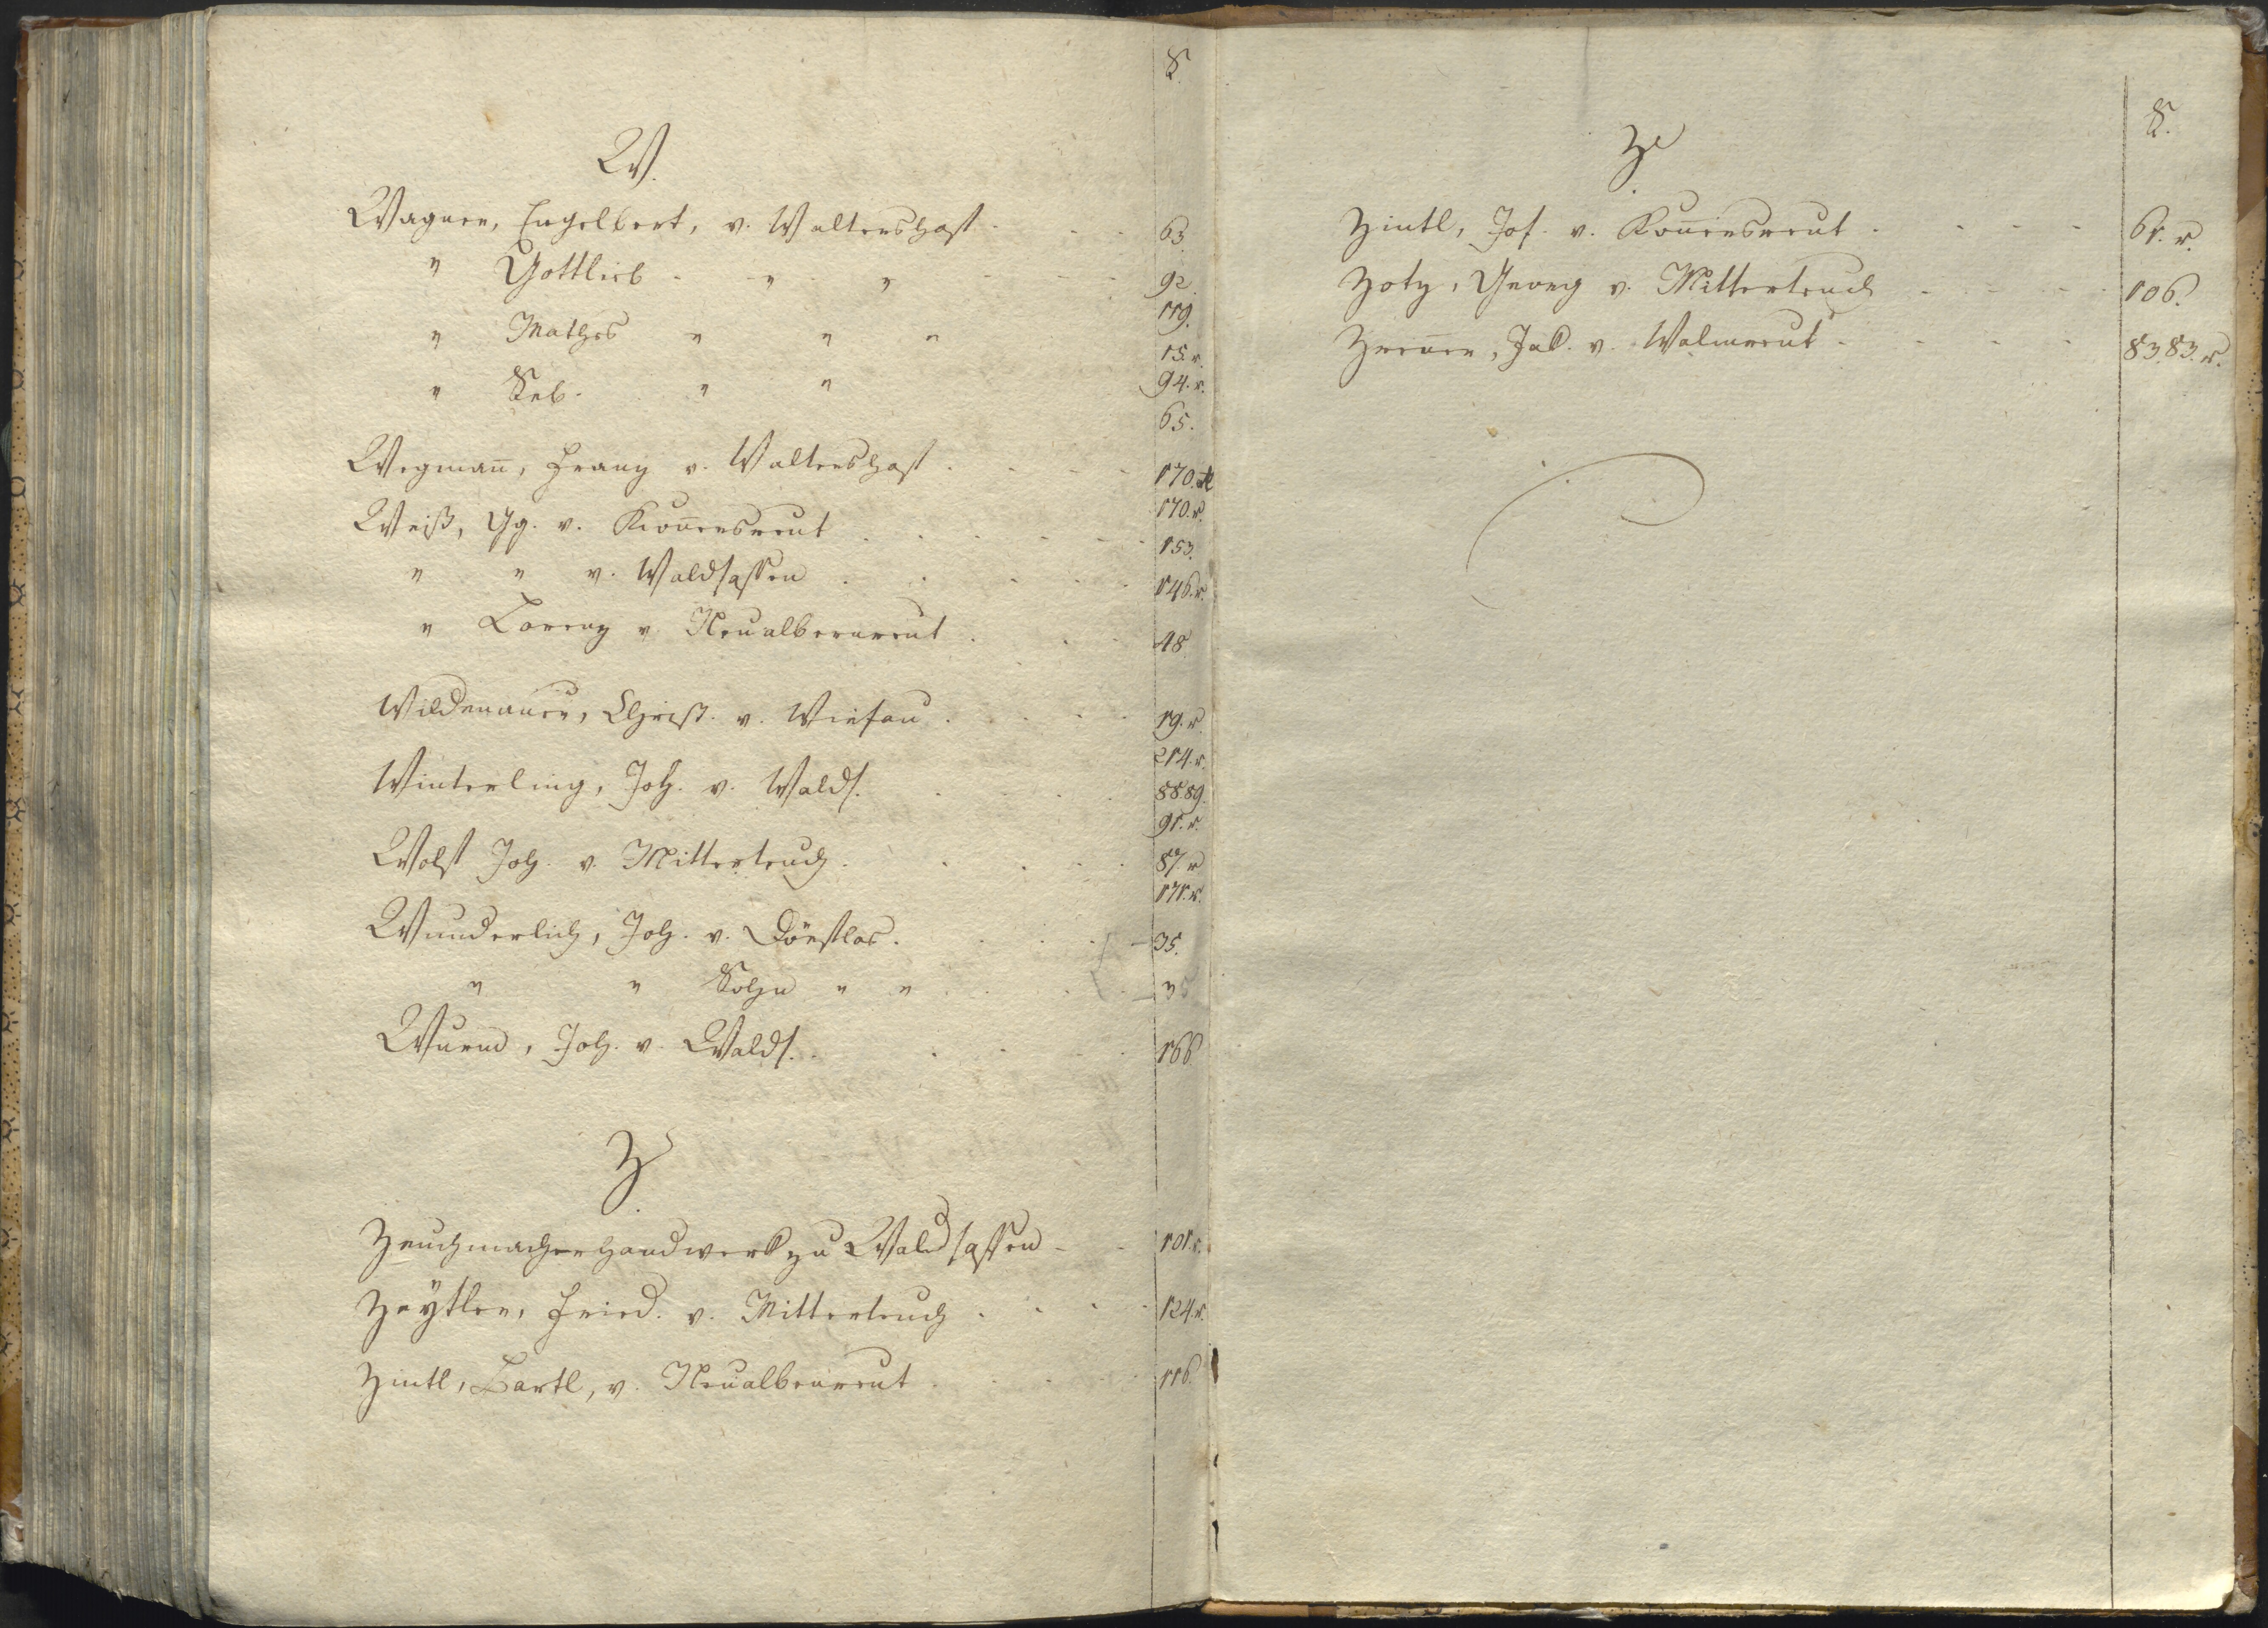 S.
W.
Wagner, Engelbert, v. Waltershof . . . 63
" Gottlieb . " " . . . 92.
119.
" Mathes " " "
15.r.
" Seb. " " 94.r.
65.
Wegman̄, Franz v. Waltershof . . . 170.
Weiß, Gg. v. Kon̄ersreut . . . 170.r.
153.
" " v. Waldsassen . . . 146.r.
" Lorenz v. Neualbernreut . . . 48
Wildenauer, Christ. v. Wiesau . . . 19.r.
214.r.
Winterling, Joh. v. Walds. . . . 88.89.
91.r.
Wolf Joh. v. Mitterteich . . . 87.r
171.r.
Wunderlich, Joh. v. Dörflas . . . 35.
" " Sohn " " . . . 35
Wurm, Joh. v. Walds. . . . 166
Z.
Zeuchmacherhandwerk zu Waldsassen - - 101.r.
Zeÿtler, Fried. v. Mitterteich . . . 124.r.
Zintl, Bartl, v. Neualbenreut . . . 116.
S.
Z
Zintl, Jos. v. Kon̄ersreut . . . 61.r.
Zotz, Georg v. Mitterteich . . . 106.
Zren̄er, Jak. v. Walmreut . . . 83.83.r.